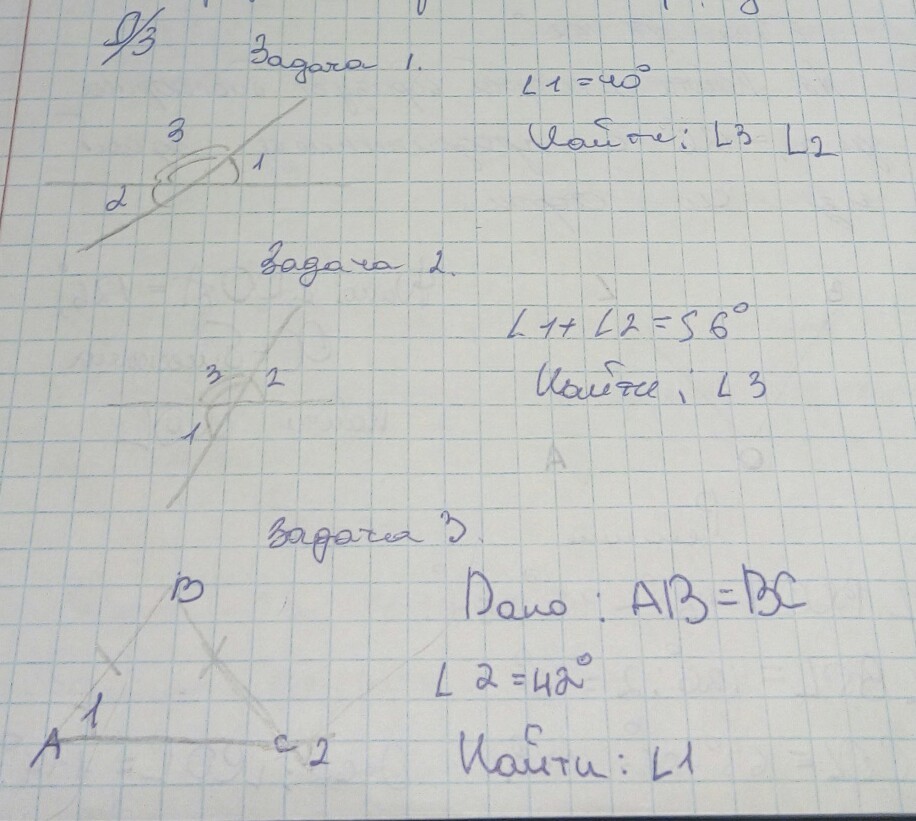 Д/З
Задача 1.
∠1 = 40°
Найти: ∠3 ∠2
3
1
2
Задача 2.
∠1 + ∠2 = 56°
Найти: ∠3
3 2
1
Задача 3.
B
Дано: AB = BC
∠2 = 42°
1
A C 2
Найти: ∠1